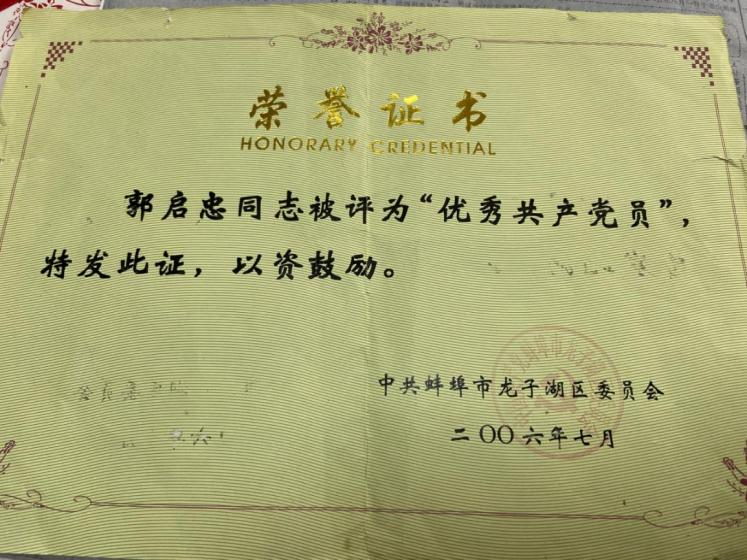 荣誉证书
HONORARY CREDENTIAL
郭启忠同志被评为“优秀共产党员”，
特发此证，以资鼓励。
中共蚌埠市龙子湖区委员会
二〇〇六年七月